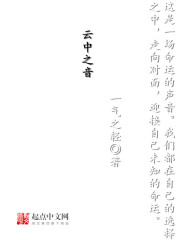 这是一场命运的声音。我们都在自己的选择
之中，走向对面，迎接自己未知的命运。
云中之音
一气之轻◎著
起点中文网